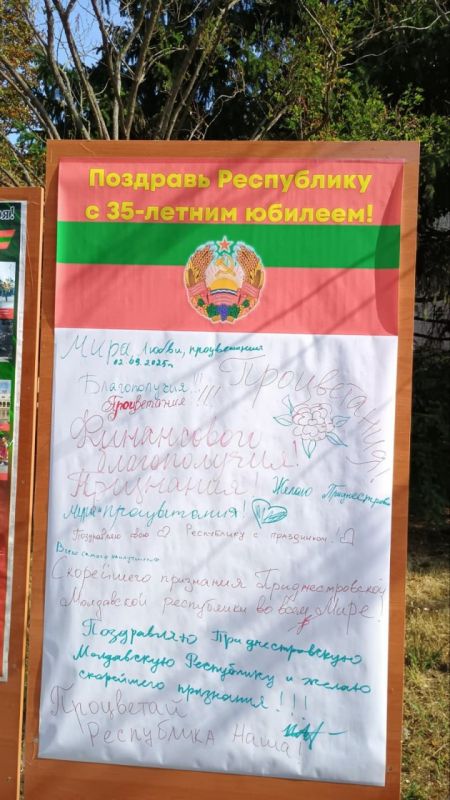 Поздравь Республику
с 35-летним юбилеем!
Мира, любви, процветания
02.09.2025г
Благополучия!!!
Процветания!!!
Процветания!
Финансового
благополучия!
Признания!
Желаю Приднестровью
Мира и процветания!
Поздравляю свою Республику с праздником!
Всего самого наилучшего
Скорейшего признания Приднестровской
Молдавской республики во всём Мире!
Поздравляю Приднестровскую
Молдавскую Республику и желаю
скорейшего признания!!!
Процветай
Республика Наша!